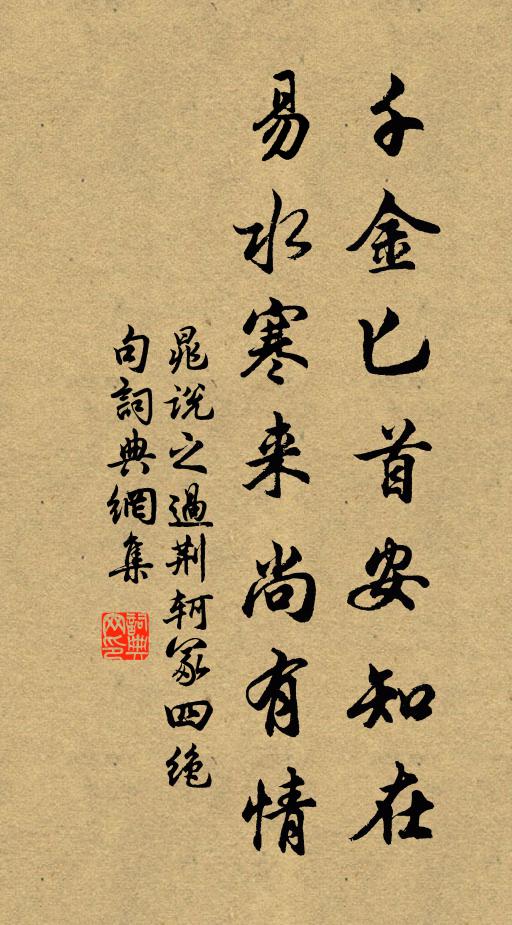 千金匕首安知在
易水寒来尚有情
晁说之過荆轲冢四绝
句詞典網集
詞典網印